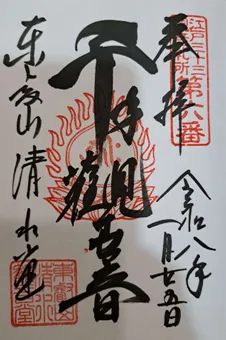 奉拝
江戸三十三
第六番
令和八年
一月廿五日
千手観世音
東叡山 清水堂
東叡山
清水堂